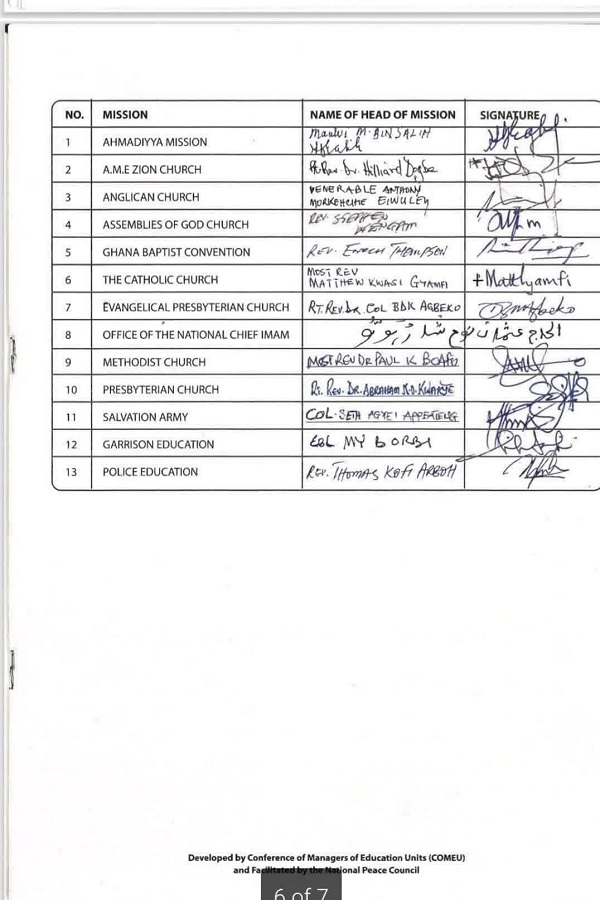 NO. MISSION NAME OF HEAD OF MISSION SIGNATURE
1 AHMADIYYA MISSION Maulvi M. BIN SALIH
2 A.M.E ZION CHURCH Rt. Rev. Dr. Hilliard Dogbe
3 ANGLICAN CHURCH VENERABLE ANTHONY
4 ASSEMBLIES OF GOD CHURCH REV. STEPHEN WENGAM
5 GHANA BAPTIST CONVENTION REV. ENOCH THOMPSON
6 THE CATHOLIC CHURCH MOST REV
MATTHEW KWASI GYAMFI +Matthyamfi
7 EVANGELICAL PRESBYTERIAN CHURCH RT. REV. DR. COL BDK AGBEKO
8 OFFICE OF THE NATIONAL CHIEF IMAM الحاج عثمان نوح
9 METHODIST CHURCH MOST REV DR PAUL K BOAFO
10 PRESBYTERIAN CHURCH Rt. Rev. DR. ABRAHAM N.O. KWAKYE
11 SALVATION ARMY COL. SETH AGYEI APPEATENG
12 GARRISON EDUCATION COL MY BORBI
13 POLICE EDUCATION REV. THOMAS KOFI ARBOH
Developed by Conference of Managers of Education Units (COMEU)
and Facilitated by the National Peace Council
6 of 7